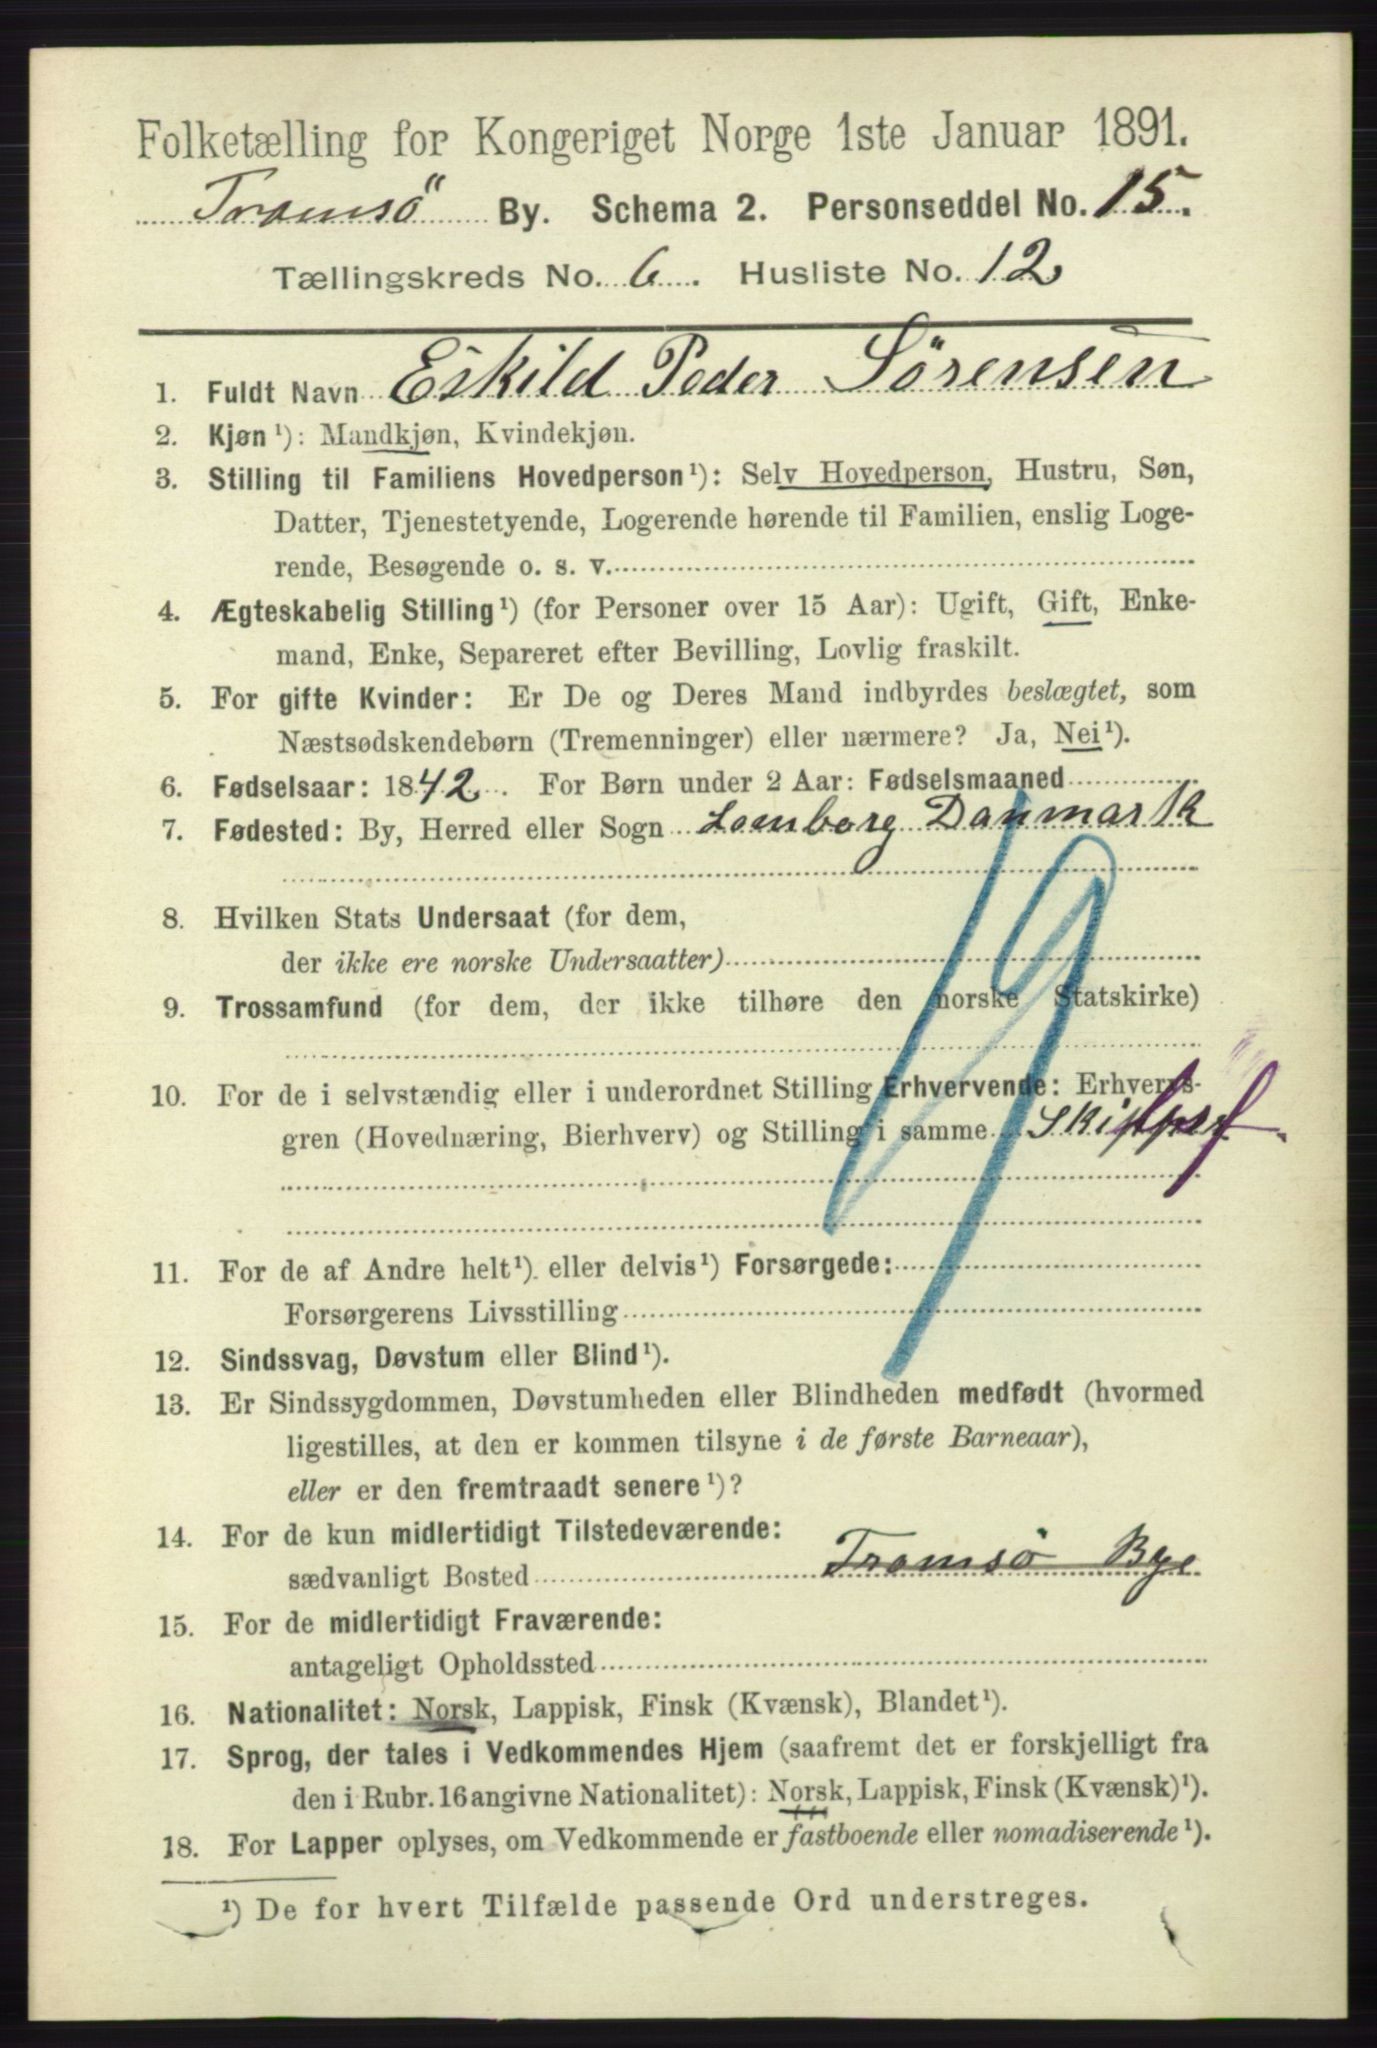 Folketælling for Kongeriget Norge 1ste Januar 1891.
Tromsö By. Schema 2. Personseddel No. 15.
Tællingskreds No. 6. Husliste No. 12
1. Fuldt Navn Eskild Peder Sörensen
2. Kjøn¹): Mandkjøn, Kvindekjøn.
3. Stilling til Familiens Hovedperson¹): Selv Hovedperson, Hustru, Søn,
Datter, Tjenestetyende, Logerende hørende til Familien, enslig Loge-
rende, Besøgende o. s. v.
4. Ægteskabelig Stilling¹) (for Personer over 15 Aar): Ugift, Gift, Enke-
mand, Enke, Separeret efter Bevilling, Lovlig fraskilt.
5. For gifte Kvinder: Er De og Deres Mand indbyrdes beslægtet, som
Næstsødskendebørn (Tremenninger) eller nærmere? Ja, Nei¹).
6. Fødselsaar: 1842. For Børn under 2 Aar: Fødselsmaaned
7. Fødested: By, Herred eller Sogn Lemborg Danmark
8. Hvilken Stats Undersaat (for dem,
der ikke ere norske Undersaatter)
9. Trossamfund (for dem, der ikke tilhøre den norske Statskirke)
10. For de i selvstændig eller i underordnet Stilling Erhvervende: Erhvervs-
gren (Hovednæring, Bierhverv) og Stilling i samme Skipper f
19
11. For de af Andre helt¹) eller delvis¹) Forsørgede:
Forsørgerens Livsstilling
12. Sindssvag, Døvstum eller Blind¹).
13. Er Sindssygdommen, Døvstumheden eller Blindheden medfødt (hvormed
ligestilles, at den er kommen tilsyne i de første Barneaar),
eller er den fremtraadt senere¹)?
14. For de kun midlertidigt Tilstedeværende:
sædvanligt Bosted Tromsö Bye
15. For de midlertidigt Fraværende:
antageligt Opholdssted
16. Nationalitet: Norsk, Lappisk, Finsk (Kvænsk), Blandet¹).
17. Sprog, der tales i Vedkommendes Hjem (saafremt det er forskjelligt fra
den i Rubr. 16 angivne Nationalitet): Norsk, Lappisk, Finsk (Kvænsk)¹).
18. For Lapper oplyses, om Vedkommende er fastboende eller nomadiserende¹).
¹) De for hvert Tilfælde passende Ord understreges.